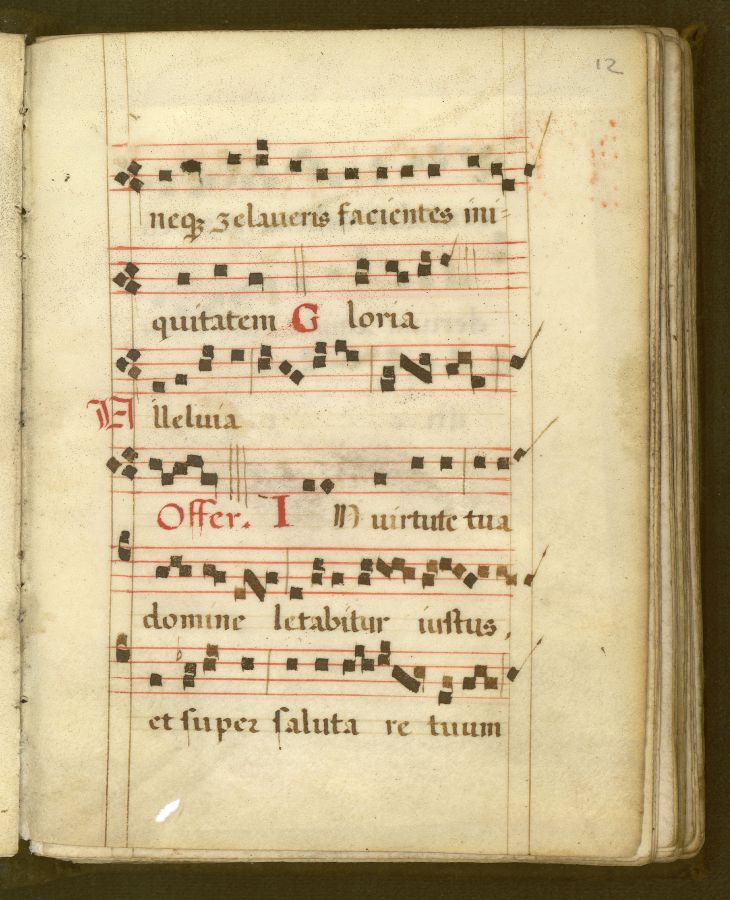 12
neqꝫ zelaueris facientes ini=
quitatem G loria
A lleluia
Offer. I N uirtute tua
domine letabitur iustus,
et super saluta re tuum